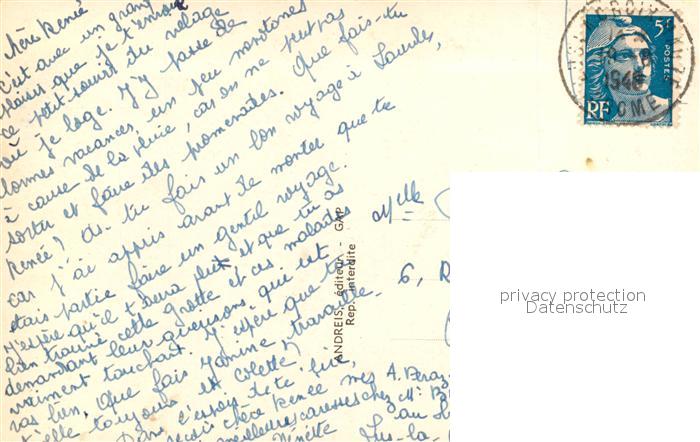 Chère Renée
C'est avec un grand
plaisir que je t'envoie
ce petit souvenir du village
où je loge. J'y passe de
bonnes vacances, un peu monotones
à cause de la pluie, car on ne peut pas
sortir et faire des promenades. Que fais-tu
Renée? As-tu fais un bon voyage à Lourdes,
car j'ai appris avant de monter que tu
étais partie faire un gentil voyage.
J'espère qu'il t'aura plut et que tu as
bien trouvé cette grotte et ces malades
demandant leur guérison, qui est
vraiment touchant. J'espère que tu
vas bien. Que fais Janine, travaille
t'elle toujours et Colette?
Dans l'espoir de te lire,
reçois chère Renée mes
meilleures caresses
Ginette
A. Beray
chez Mr
au
Lus-la-
Melle
6, R
ANDREIS, éditeur - GAP
Rep. Interdite
5F
POSTES
RF
1948
privacy protection
Datenschutz